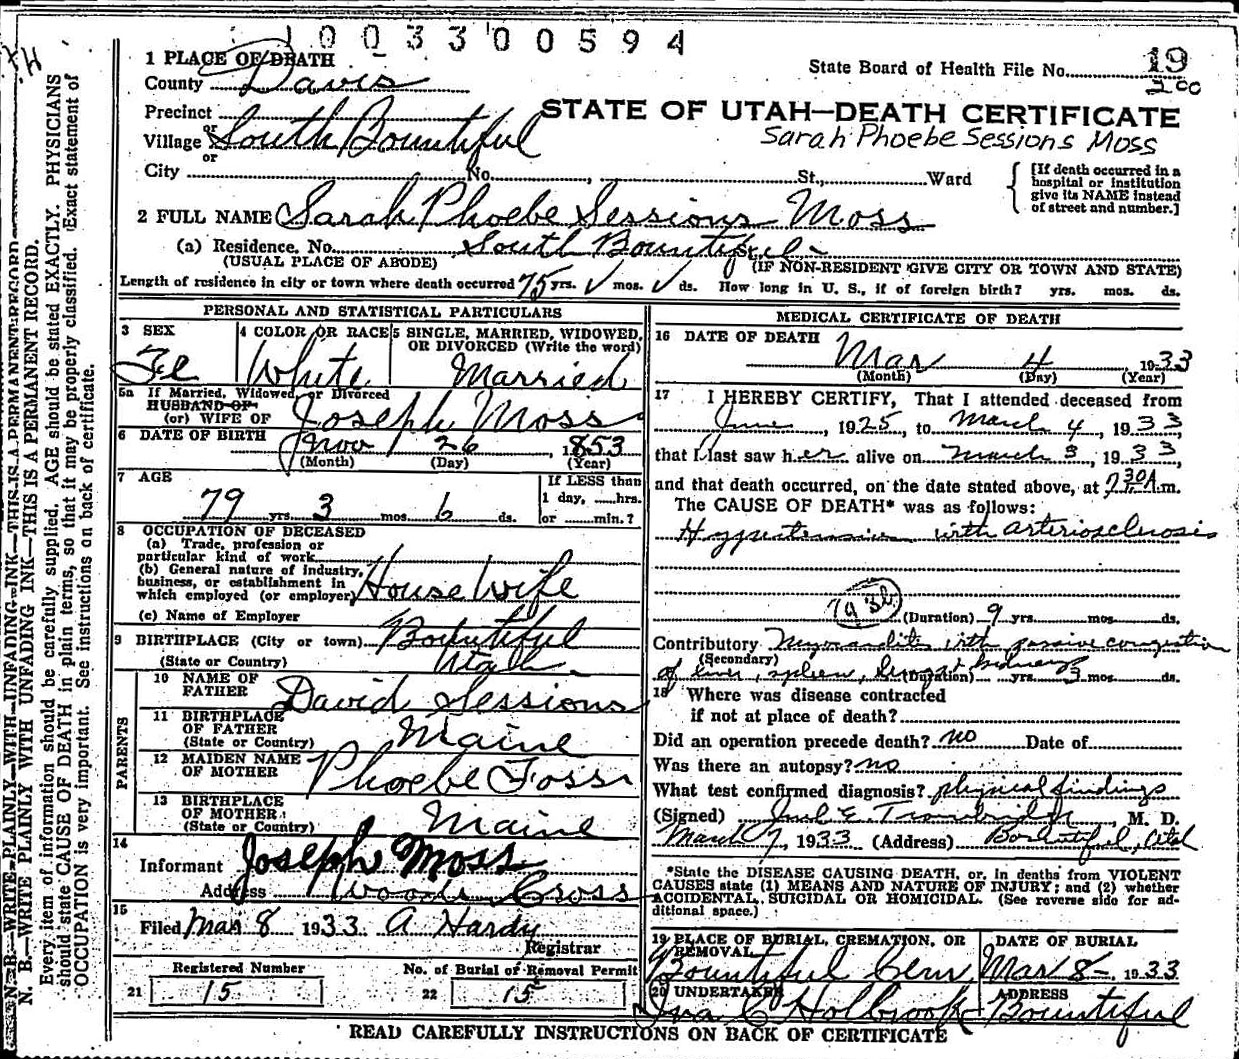 1003300594
1 PLACE OF DEATH
State Board of Health File No. 19
200
County Davis
Precinct
STATE OF UTAH—DEATH CERTIFICATE
or
Village South Bountiful
Sarah Phoebe Sessions Moss
or
City No. , St., Ward
{ [If death occurred in a hospital or institution give its NAME instead of street and number.]
2 FULL NAME Sarah Phoebe Sessions Moss
(a) Residence. No. South Bountiful
(USUAL PLACE OF ABODE) (IF NON-RESIDENT GIVE CITY OR TOWN AND STATE)
Length of residence in city or town where death occurred 75 yrs. ✓ mos. ✓ ds. How long in U. S., if of foreign birth? yrs. mos. ds.
PERSONAL AND STATISTICAL PARTICULARS
3 SEX
Fe
4 COLOR OR RACE
White
5 SINGLE, MARRIED, WIDOWED, OR DIVORCED (Write the word)
Married
5a If Married, Widowed, or Divorced
HUSBAND OF
(or) WIFE OF Joseph Moss
6 DATE OF BIRTH Nov 26, 1853
(Month) (Day) (Year)
7 AGE
79 yrs. 3 mos. 6 ds.
If LESS than
1 day, hrs.
or min.?
8 OCCUPATION OF DECEASED
(a) Trade, profession or
particular kind of work
(b) General nature of industry,
business, or establishment in
which employed (or employer) House Wife
(c) Name of Employer
9 BIRTHPLACE (City or town) Bountiful
(State or Country) Utah
PARENTS
10 NAME OF
FATHER David Sessions
11 BIRTHPLACE
OF FATHER
(State or Country) Maine
12 MAIDEN NAME
OF MOTHER Phoebe Foss
13 BIRTHPLACE
OF MOTHER
(State or Country) Maine
14
Informant Joseph Moss
Address Woods Cross
15
Filed Mar 8 1933. A Hardy
Registrar
Registered Number
21 15
No. of Burial of Removal Permit
22 15
MEDICAL CERTIFICATE OF DEATH
16 DATE OF DEATH
Mar 4 1933
(Month) (Day) (Year)
17 I HEREBY CERTIFY, That I attended deceased from
June, 1925, to March 4, 1933,
that I last saw her alive on March 3, 1933,
and that death occurred, on the date stated above, at 7:30 A.m.
The CAUSE OF DEATH* was as follows:
Hypertension with arteriosclerosis
(Duration) 9 yrs. mos. ds.
Contributory Myocarditis with passive congestion
(Secondary)
of liver, spleen, kidneys (Duration) yrs. 3 mos. ds.
18 Where was disease contracted
if not at place of death?
Did an operation precede death? no Date of
Was there an autopsy? no
What test confirmed diagnosis? physical findings
(Signed) E. Trowbridge, M. D.
March 7, 1933 (Address) Bountiful, Utah
*State the DISEASE CAUSING DEATH, or, in deaths from VIOLENT
CAUSES state (1) MEANS AND NATURE OF INJURY; and (2) whether
ACCIDENTAL, SUICIDAL OR HOMICIDAL. (See reverse side for ad-
ditional space.)
19 PLACE OF BURIAL, CREMATION, OR
REMOVAL
Bountiful Cem
DATE OF BURIAL
Mar 8— 1933
20 UNDERTAKER
Ira C Holbrook
ADDRESS
Bountiful
READ CAREFULLY INSTRUCTIONS ON BACK OF CERTIFICATE
N. B.—WRITE PLAINLY WITH UNFADING INK—THIS IS A PERMANENT RECORD.
N. B.—WRITE PLAINLY WITH UNFADING INK—THIS IS A PERMANENT RECORD.
Every item of information should be carefully supplied. AGE should be stated EXACTLY. PHYSICIANS
should state CAUSE OF DEATH in plain terms, so that it may be properly classified. Exact statement of
OCCUPATION is very important. See instructions on back of certificate.